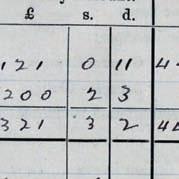 £ s. d.
121 0 11
200 2 3
321 3 2